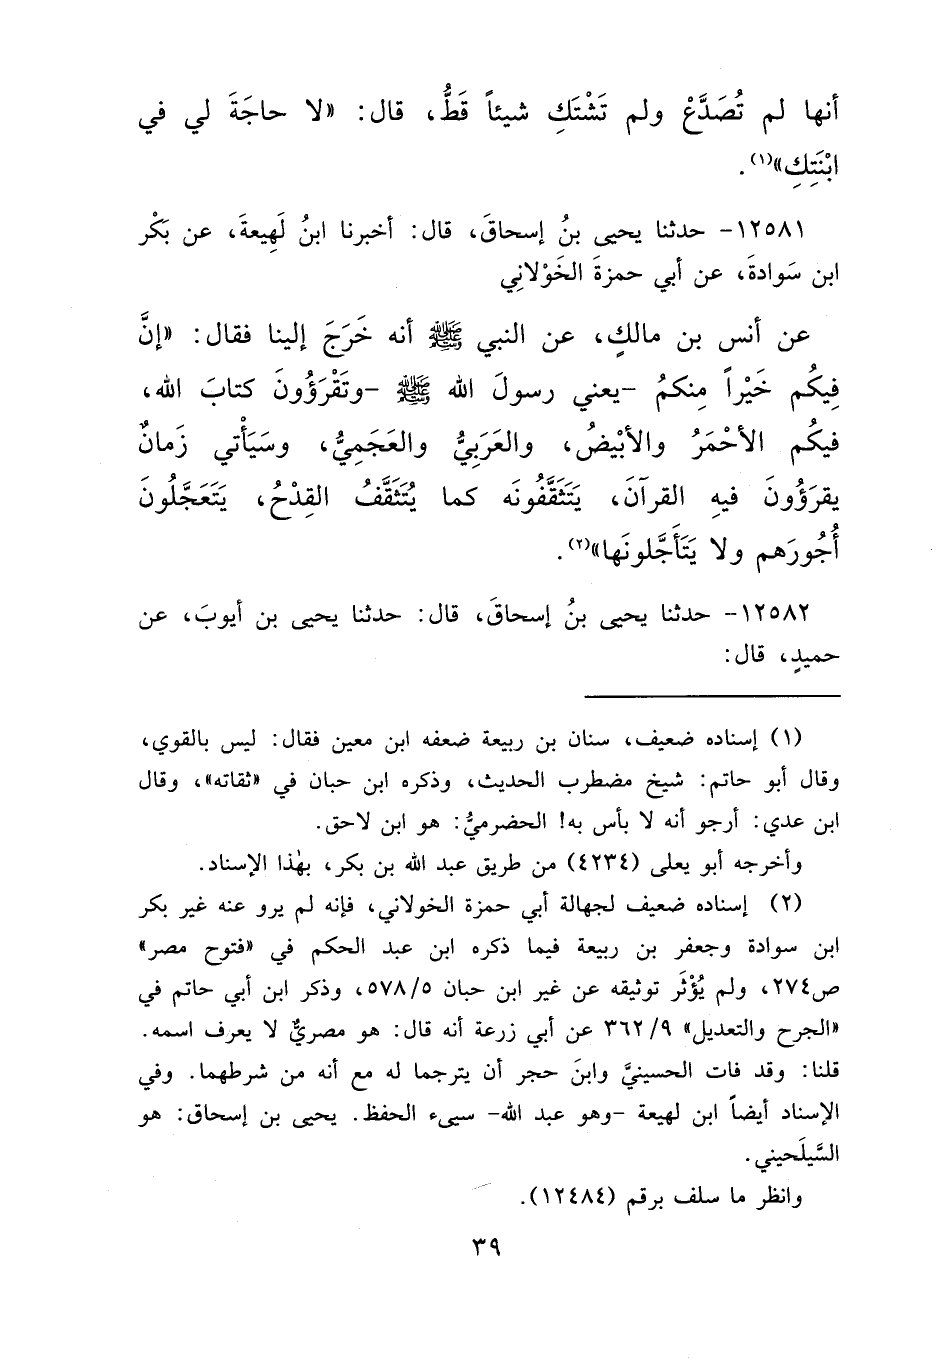 أنها لم تُصَدَّعْ ولم تَشْتَكِ شيئاً قَطُّ، قال: «لا حاجَةَ لي في
ابْنَتِكِ»(١).
١٢٥٨١- حدثنا يحيى بنُ إسحاقَ، قال: أخبرنا ابنُ لَهِيعةَ، عن بَكْر
ابن سَوادةَ، عن أبي حمزةَ الخَوْلانِي
عن أنس بن مالكٍ، عن النبي ﷺ أنه خَرَجَ إلينا فقال: «إنَّ
فِيكُم خَيْراً مِنكمُ -يعني رسولَ الله ﷺ -وتَقْرَؤُونَ كتابَ الله،
فيكُم الأحْمَرُ والأبْيضُ، والعَرَبِيُّ والعَجَمِيُّ، وسَيَأْتي زَمانٌ
يقرَؤُونَ فيهِ القرآنَ، يَتَثَقَّفُونَه كما يُتَثَقَّفُ القِدْحُ، يَتَعَجَّلُونَ
أُجُورَهم ولا يَتَأَجَّلونَها»(٢).
١٢٥٨٢- حدثنا يحيى بنُ إسحاقَ، قال: حدثنا يحيى بن أيوبَ، عن
حميدٍ، قال:
(١) إسناده ضعيف، سنان بن ربيعة ضعفه ابن معين فقال: ليس بالقوي،
وقال أبو حاتم: شيخ مضطرب الحديث، وذكره ابن حبان في «ثقاته»، وقال
ابن عدي: أرجو أنه لا بأس به! الحضرميُّ: هو ابن لاحق.
وأخرجه أبو يعلى (٤٢٣٤) من طريق عبد الله بن بكر، بهٰذا الإسناد.
(٢) إسناده ضعيف لجهالة أبي حمزة الخولاني، فإنه لم يرو عنه غير بكر
ابن سوادة وجعفر بن ربيعة فيما ذكره ابن عبد الحكم في «فتوح مصر»
ص٢٧٤، ولم يُؤْثَر توثيقه عن غير ابن حبان ٥٧٨/٥، وذكر ابن أبي حاتم في
«الجرح والتعديل» ٣٦٢/٩ عن أبي زرعة أنه قال: هو مصريٌّ لا يعرف اسمه.
قلنا: وقد فات الحسينيَّ وابنَ حجر أن يترجما له مع أنه من شرطهما. وفي
الإسناد أيضاً ابن لهيعة -وهو عبد الله- سيىء الحفظ. يحيى بن إسحاق: هو
السَّيلَحيني.
وانظر ما سلف برقم (١٢٤٨٤).
٣٩